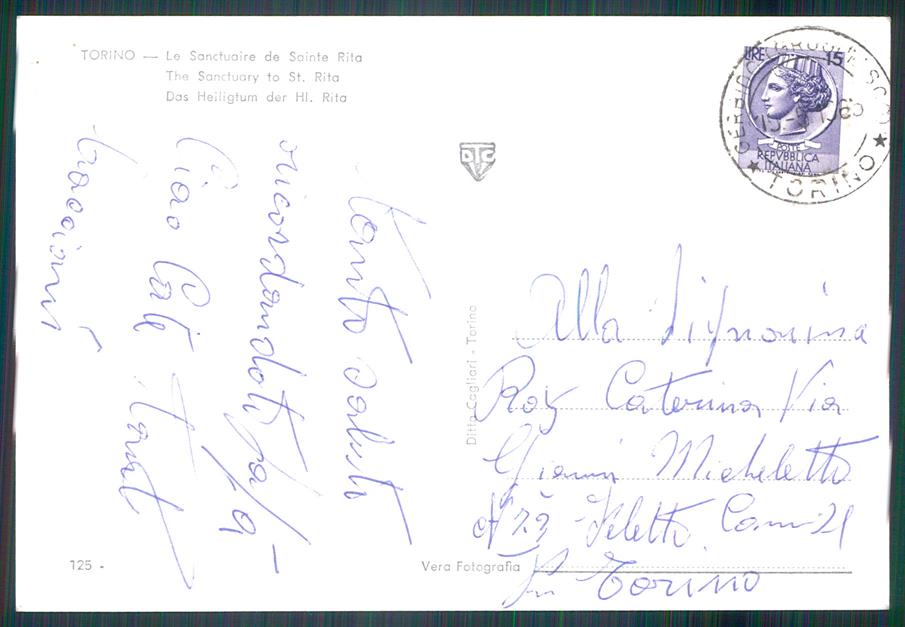 TORINO — Le Sanctuaire de Sainte Rita
The Sanctuary to St. Rita
Das Heiligtum der Hl. Rita
LIRE 15
POSTE
REPVBBLICA
ITALIANA
TORINO
DTC
Tanti saluti
ricordandoti
Ciao Catì Tanti
bacioni
Ditta Cagliari - Torino
Alla Signorina
Roz Caterina Via
Gianni Micheletto
Feletto
Torino
125 -
Vera Fotografia